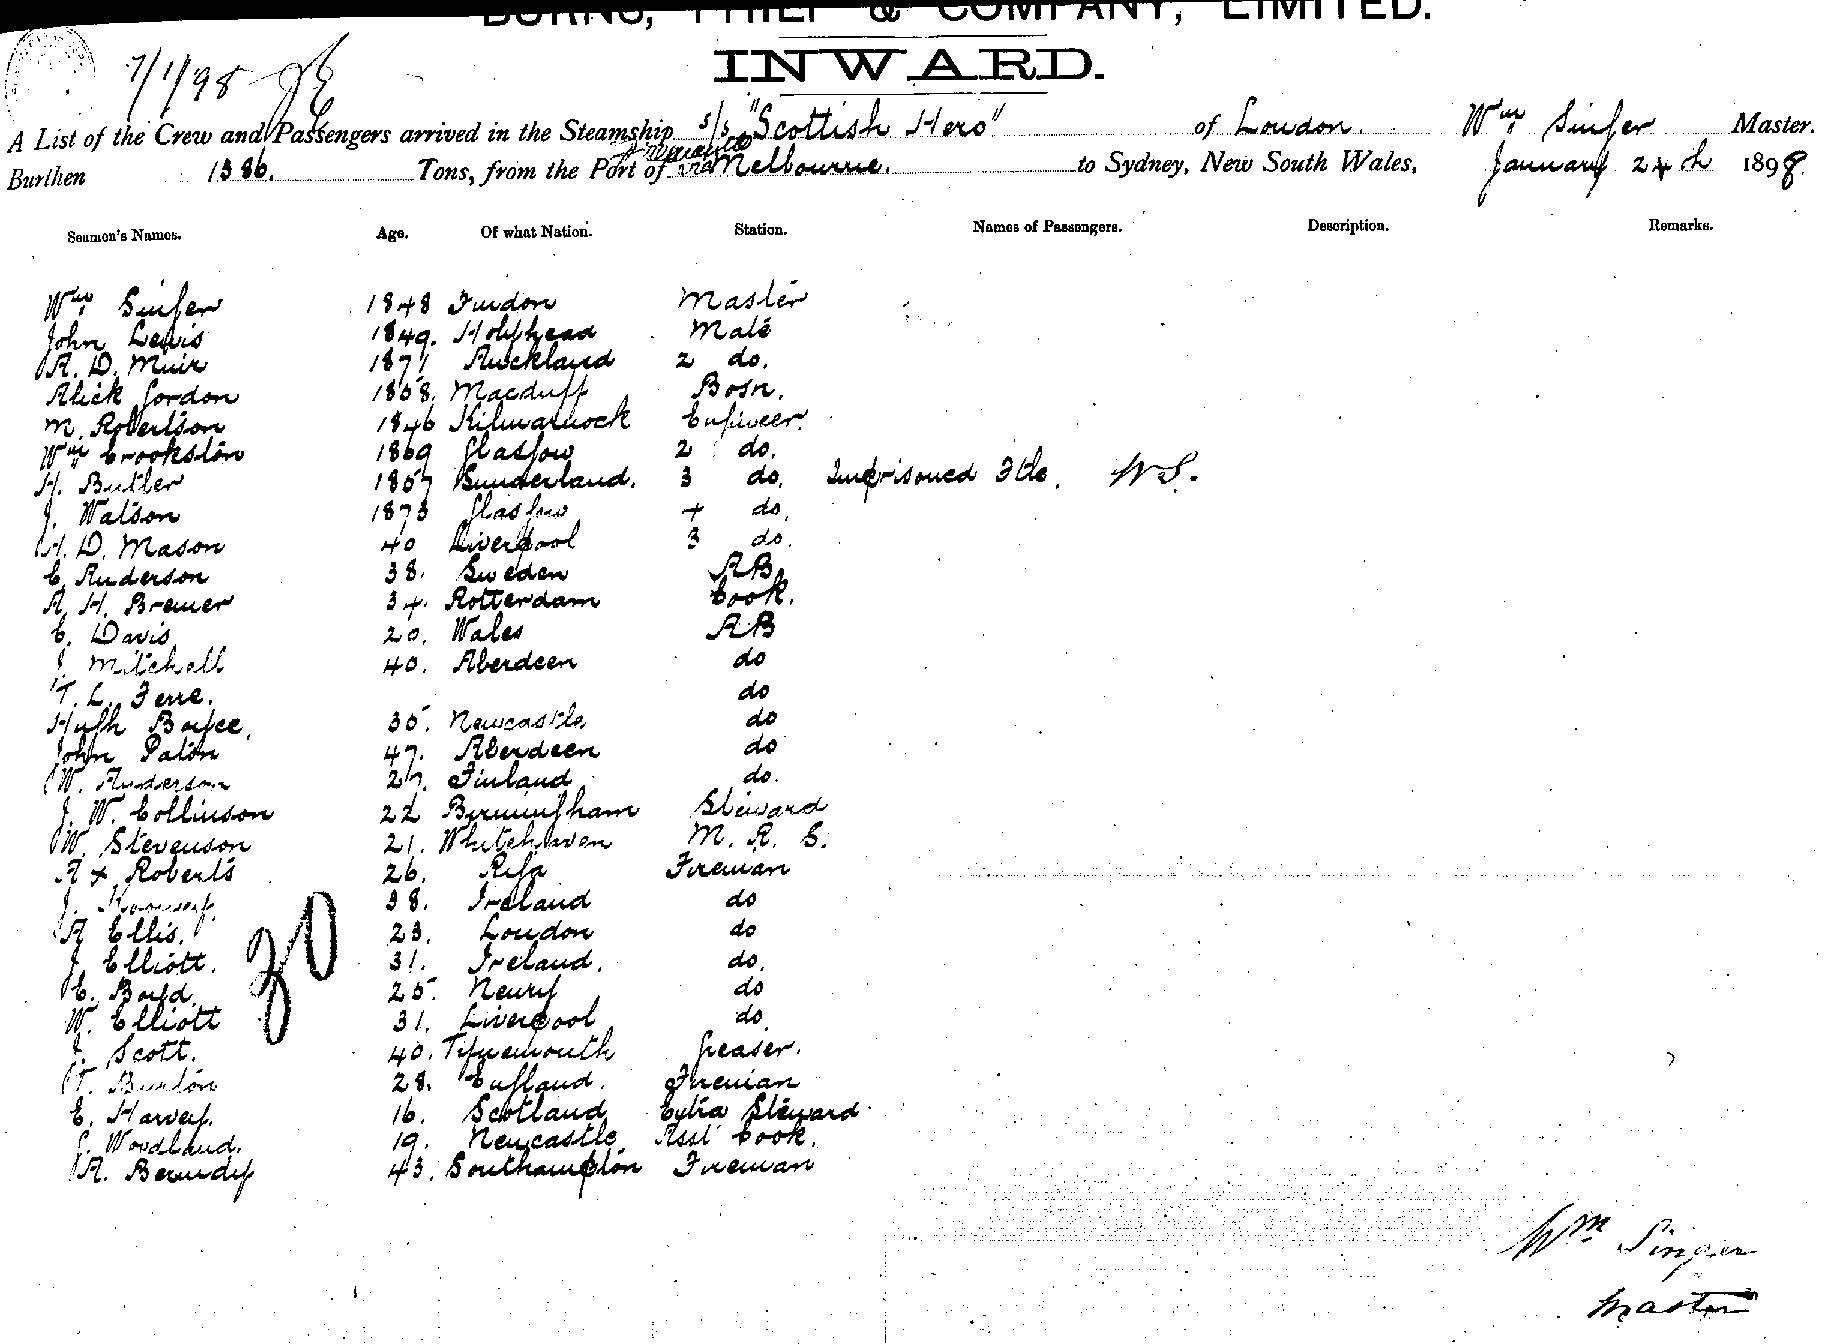 BURNS, PHILP & COMPANY, LIMITED.
INWARD.
7/1/98
A List of the Crew and Passengers arrived in the Steamship s/s "Scottish Hero" of London. Wm Singer Master.
Burthen 1386. Tons, from the Port of via Melbourne. to Sydney, New South Wales, January 24th 1898
Seamen's Names. Age. Of what Nation. Station. Names of Passengers. Description. Remarks.
Wm Singer 1848 Master
John Lewis 1849. Holyhead Mate
A. D. Muir 1871 Auckland 2 do.
Alick Gordon 1858. Macduff Bosn.
M. Robertson 1846 Kilmarnock Engineer.
Wm Crookston 1869 Glasgow 2 do.
H. Butler 1857 Sunderland. 3 do. Imprisoned Ftle. WS.
J. Watson 1873 Glasgow 4 do.
H. D. Mason 40 Liverpool 3 do.
C. Anderson 38. Sweden AB
A. H. Bremer 34. Rotterdam Cook.
C. Davis 20. Wales AB
J. Mitchell 40. Aberdeen do
T. L. Ferre. do
Hugh Boyce. 35. Newcastle do
John Paton 47. Aberdeen do
W. Anderson 27. Finland do.
J. W. Collinson 22 Birmingham Steward
W. Stevenson 21. Whitehaven M. R. S.
A x Roberts 26. Riga Fireman
J. 38. Ireland do
A Ellis. 23. London do
J. Elliott. 31. Ireland. do.
C. Boyd. 25. Newry do
W. Elliott 31. Liverpool do.
30
J. Scott. 40. Tynemouth Greaser.
T. Burton 28. England. Fireman
E. Harvey. 16. Scotland Extra Steward
J. Woodland. 19. Newcastle Asst Cook.
A. Berndy 43. Southampton Fireman
Wm Singer
Master